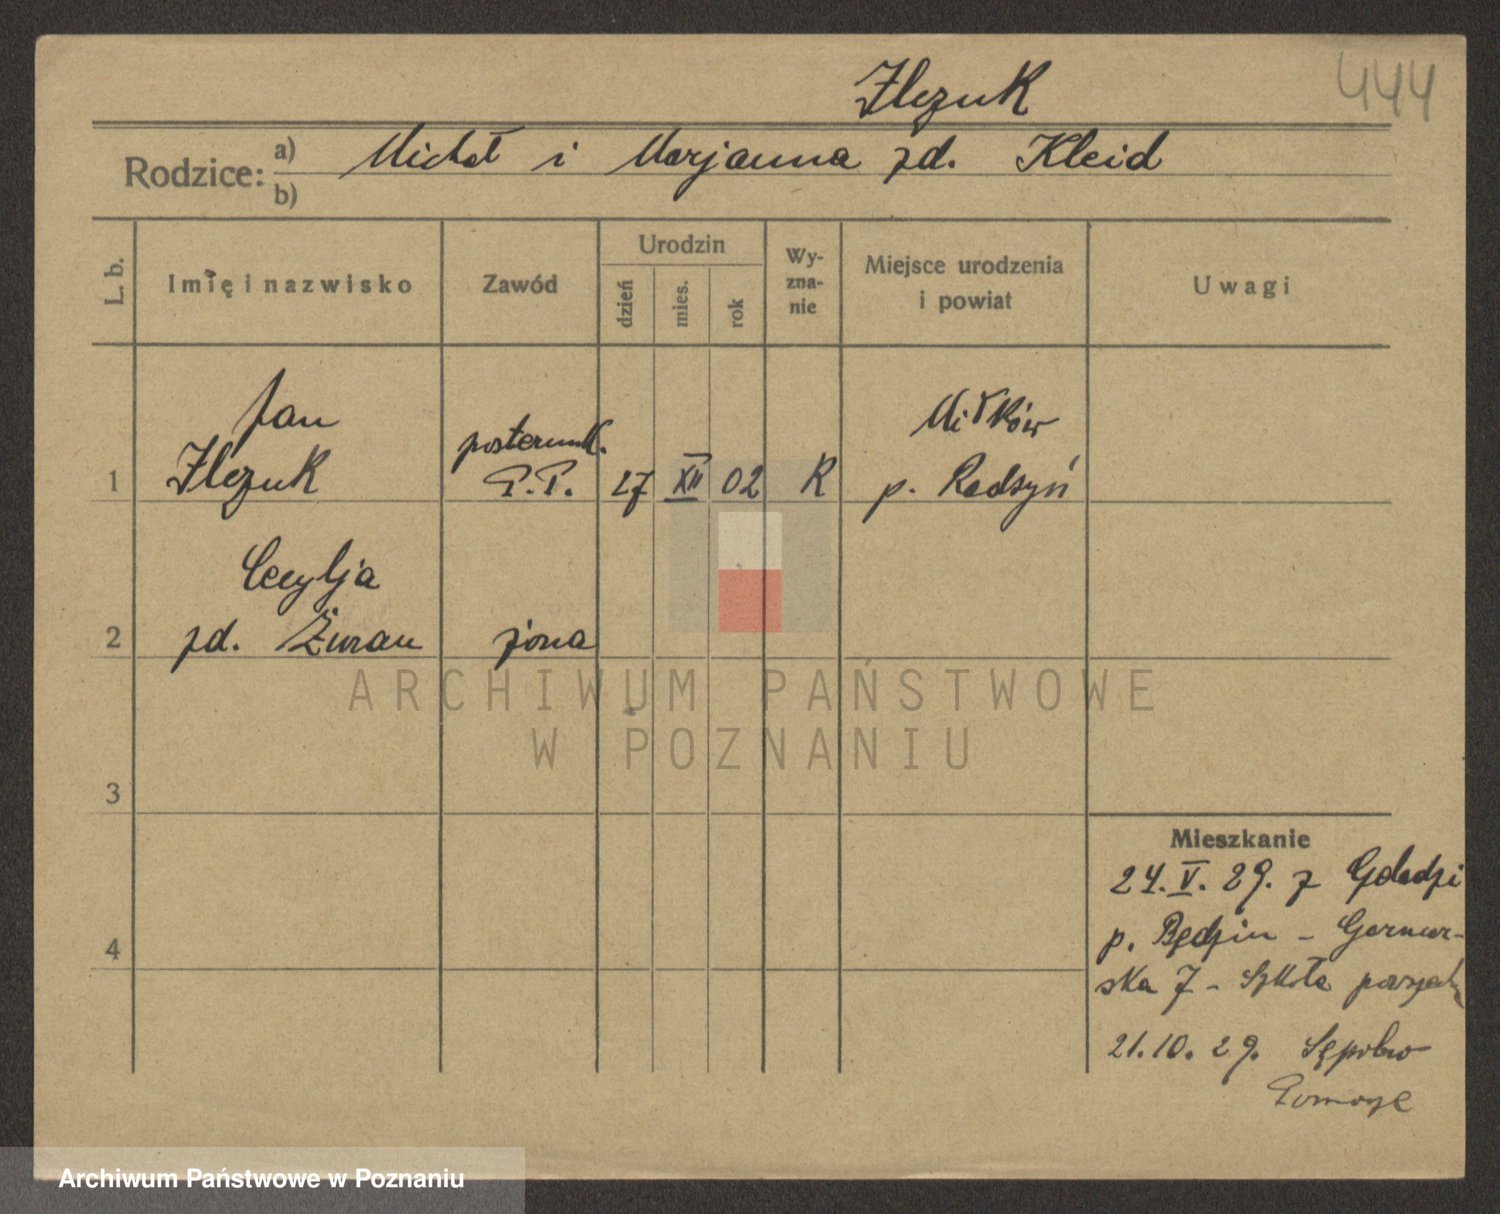 Ilczuk
444
Rodzice: a) Michał i Marjanna zd. Kleid
b)
L. b.
Imię i nazwisko
Zawód
Urodzin
dzień
mies.
rok
Wy-
zna-
nie
Miejsce urodzenia
i powiat
Uwagi
Jan
Ilczuk
posterunk.
P.P.
1
27 XII 02 R
Miłków
p. Radzyń
Cecylja
2 zd. Żuran żona
3
4
Mieszkanie
24. V. 29. z
p. Będzin – Garncar-
ska 7 – Szkoła
21.10.29. Sępólno
Pomorze
ARCHIWUM PAŃSTWOWE
W POZNANIU
Archiwum Państwowe w Poznaniu